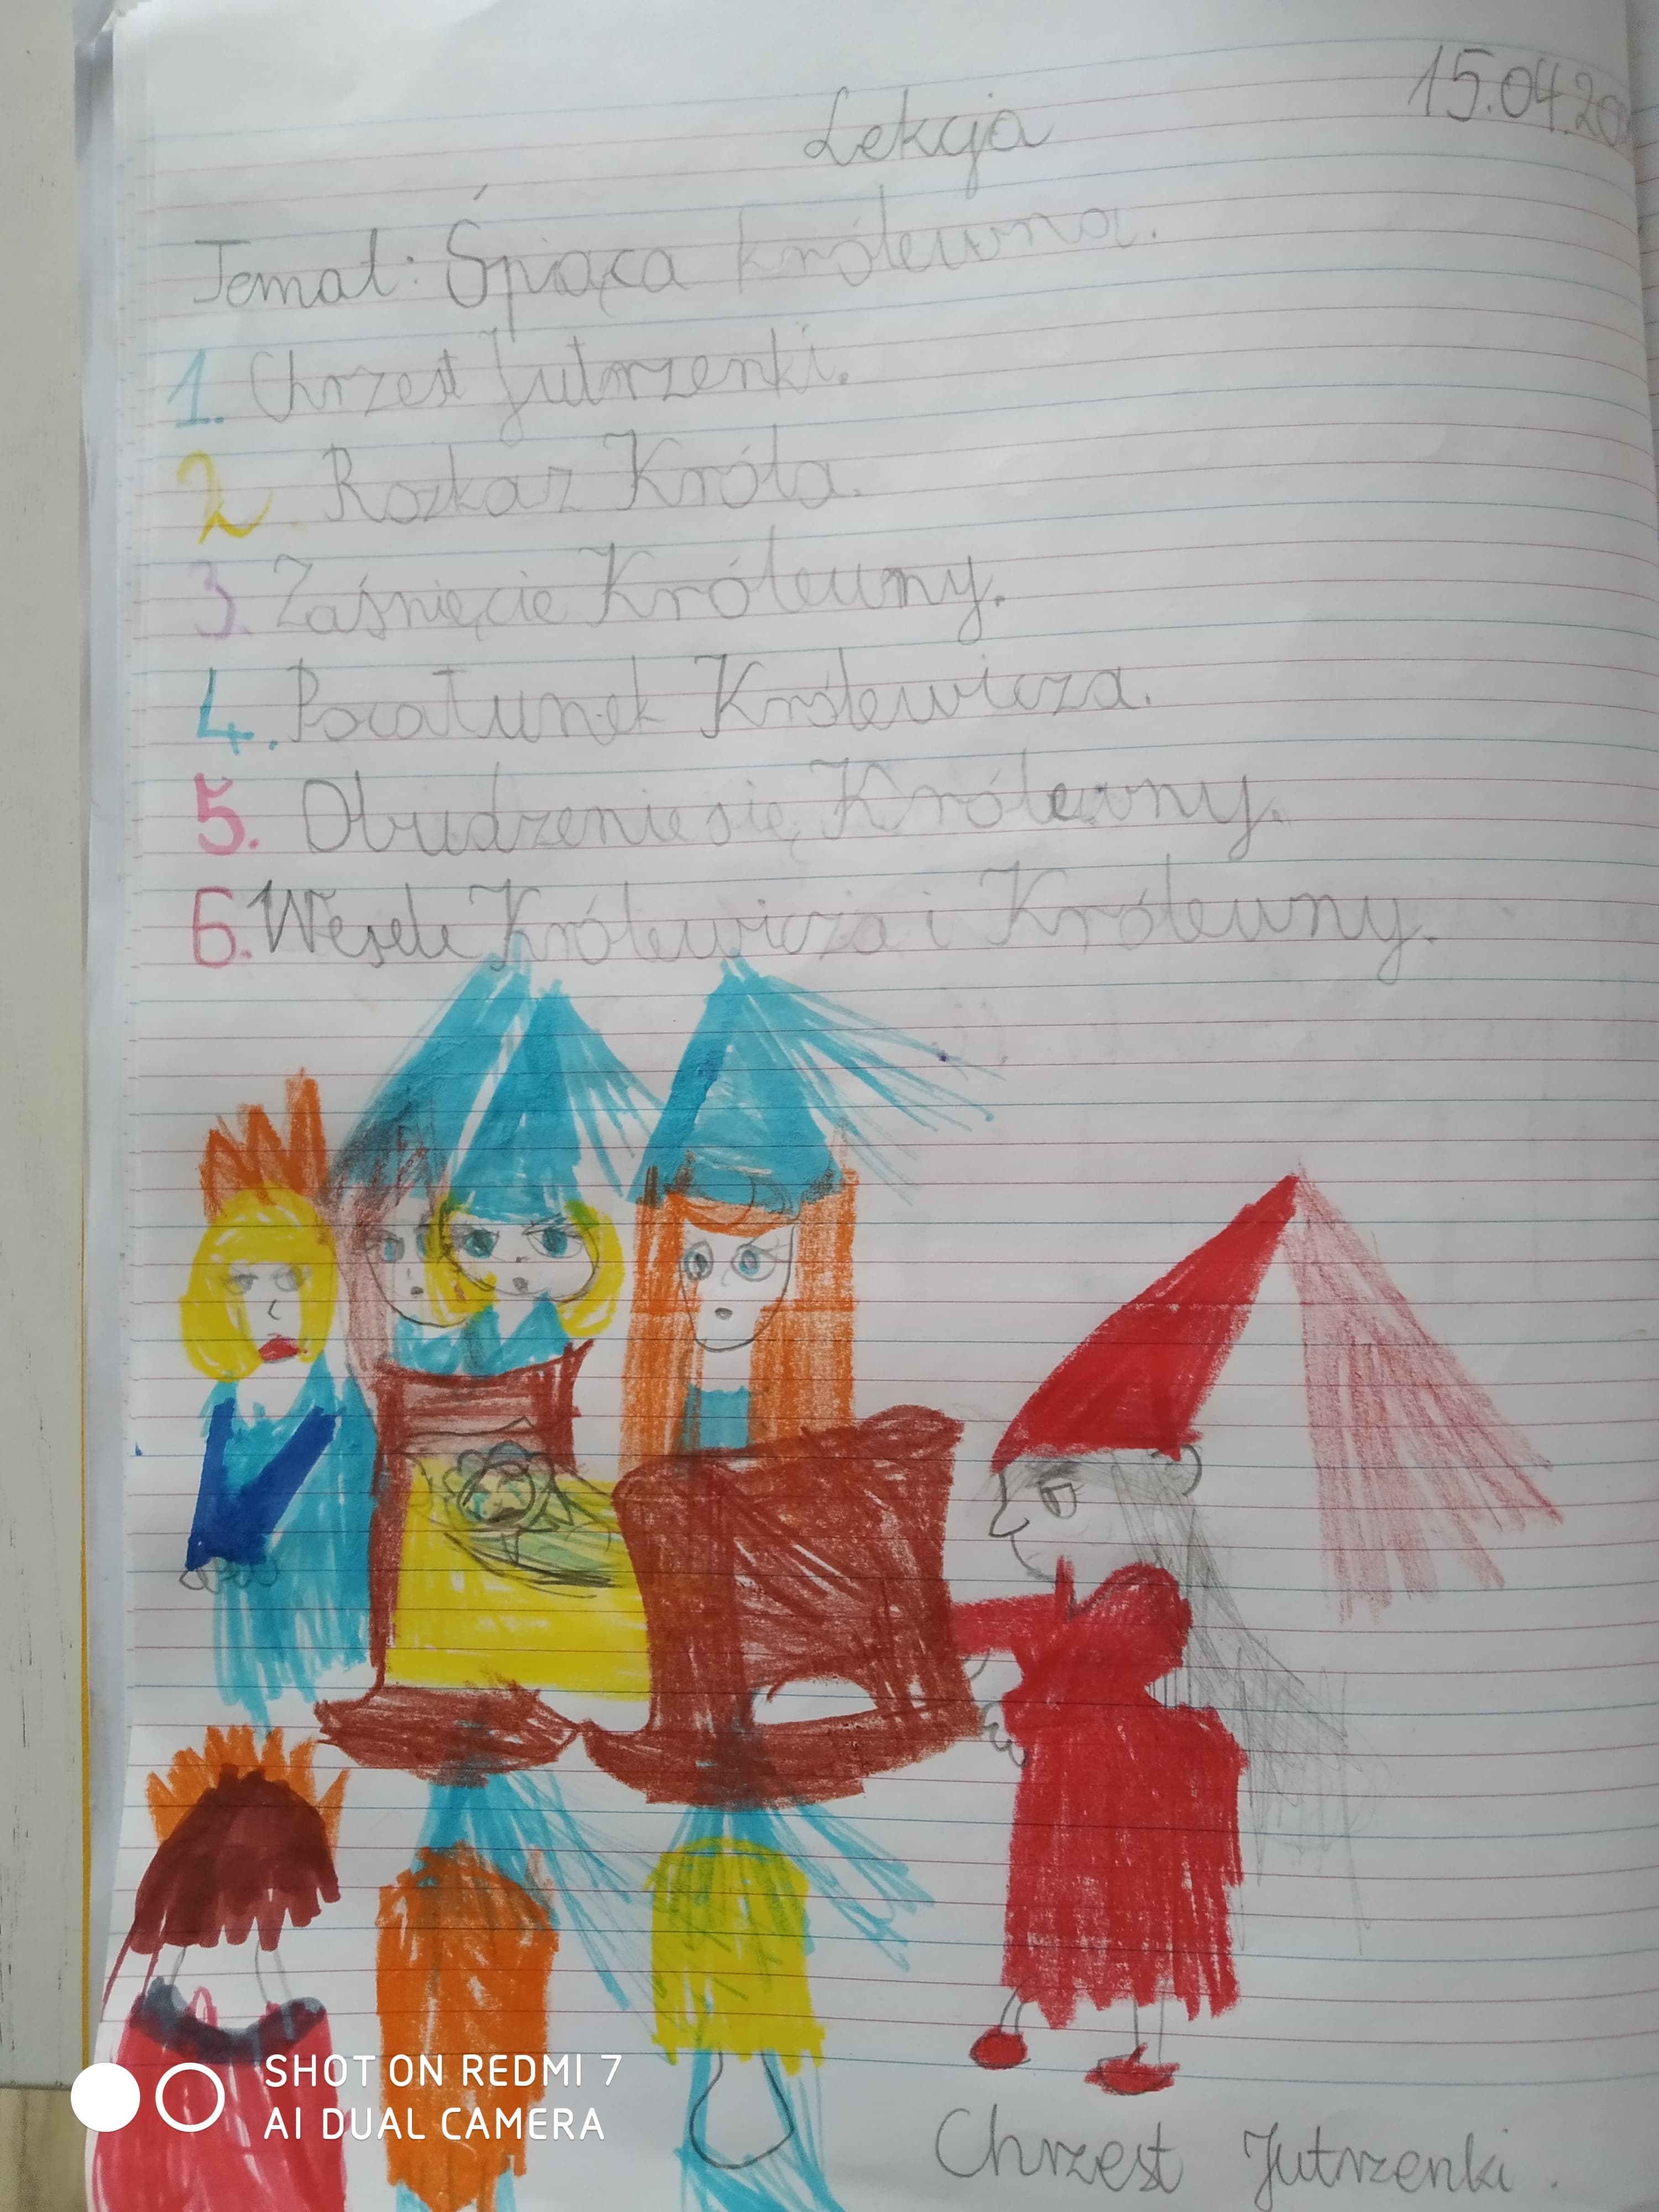 15.04.20
Lekcja
Temat: Śpiąca królewna.
1. Chrzest Jutrzenki.
2. Rozkaz Króla.
3. Zaśnięcie Królewny.
4. Pocałunek Królewicza.
5. Obudzenie się Królewny.
6. Wesele Królewicza i Królewny.
SHOT ON REDMI 7
AI DUAL CAMERA
Chrzest Jutrzenki.